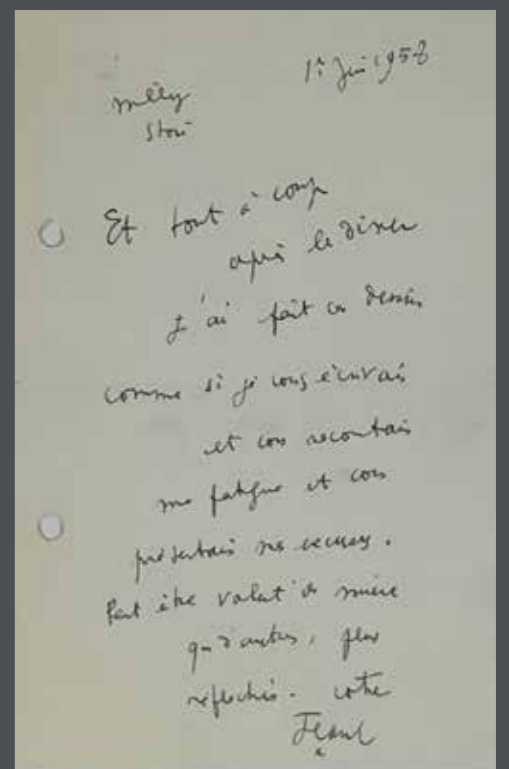 1er Juin 1958
Milly
Et tout à coup
après le dîner
j'ai fait ces dessins
comme si je vous écrivais
et vous racontais
ma fatigue et vous
présentais mes excuses.
Peut être valent ils mieux
que d'autres, plus
réfléchis. votre
Jean
*